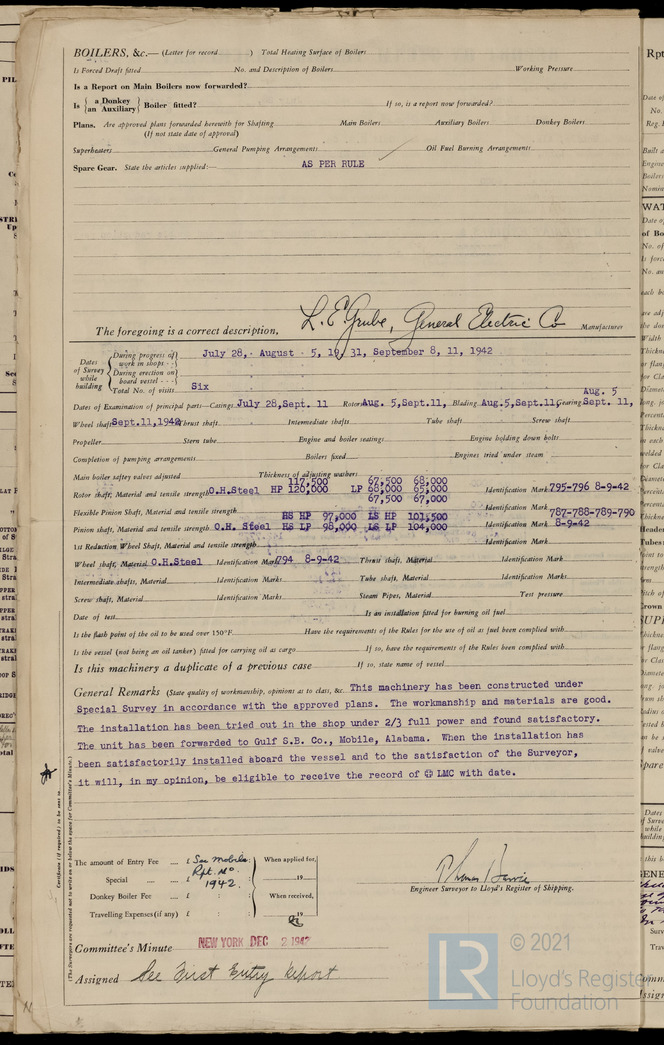 BOILERS, &c.— (Letter for record ) Total Heating Surface of Boilers
Is Forced Draft fitted No. and Description of Boilers Working Pressure
Is a Report on Main Boilers now forwarded?
Is { a Donkey / an Auxiliary } Boiler fitted? If so, is a report now forwarded?
Plans. Are approved plans forwarded herewith for Shafting Main Boilers Auxiliary Boilers Donkey Boilers
(If not state date of approval)
Superheaters General Pumping Arrangements Oil Fuel Burning Arrangements
Spare Gear. State the articles supplied:— AS PER RULE
The foregoing is a correct description, L. E. Grube, General Electric Co Manufacturer
Dates of Survey while building
During progress of work in shops - - July 28,- August - 5, 19, 31, September 8, 11, 1942
During erection on board vessel - - -
Total No. of visits Six
Aug. 5
Dates of Examination of principal parts—Casings July 28, Sept. 11 Rotors Aug. 5, Sept. 11, Blading Aug. 5, Sept. 11, Gearing Sept. 11,
Wheel shaft Sept. 11, 1942 Thrust shaft Intermediate shafts Tube shaft Screw shaft
Propeller Stern tube Engine and boiler seatings Engine holding down bolts
Completion of pumping arrangements Boilers fixed Engines tried under steam
Main boiler safety valves adjusted Thickness of adjusting washers
117,500 67,500 68,000
Rotor shaft, Material and tensile strength O.H. Steel HP 120,000 LP 68,000 65,000 Identification Mark 795-796 8-9-42
67,500 67,000
Flexible Pinion Shaft, Material and tensile strength HS HP 97,000 LS HP 101,500 Identification Mark 787-788-789-790
Pinion shaft, Material and tensile strength O.H. Steel HS LP 98,000 LS LP 104,000 Identification Mark 8-9-42
1st Reduction Wheel Shaft, Material and tensile strength Identification Mark
Wheel shaft, Material O.H.Steel Identification Mark 794 8-9-42 Thrust shaft, Material Identification Mark
Intermediate shafts, Material Identification Marks Tube shaft, Material Identification Marks
Screw shaft, Material Identification Marks Steam Pipes, Material Test pressure
Date of test Is an installation fitted for burning oil fuel
Is the flash point of the oil to be used over 150°F. Have the requirements of the Rules for the use of oil as fuel been complied with
Is the vessel (not being an oil tanker) fitted for carrying oil as cargo If so, have the requirements of the Rules been complied with
Is this machinery a duplicate of a previous case If so, state name of vessel
General Remarks (State quality of workmanship, opinions as to class, &c. This machinery has been constructed under
Special Survey in accordance with the approved plans. The workmanship and materials are good.
The installation has been tried out in the shop under 2/3 full power and found satisfactory.
The unit has been forwarded to Gulf S.B. Co., Mobile, Alabama. When the installation has
been satisfactorily installed aboard the vessel and to the satisfaction of the Surveyor,
it will, in my opinion, be eligible to receive the record of LMC with date.
Certificate (if required) to be sent to
(The Surveyors are requested not to write on or below the space for Committee's Minute.)
The amount of Entry Fee £ See Mobile When applied for,
Special £ Rpt. No. 1942. 19
Donkey Boiler Fee £ When received,
Travelling Expenses (if any) £ 19
Engineer Surveyor to Lloyd's Register of Shipping.
Committee's Minute NEW YORK DEC 2 1942
Assigned See First Entry Report
LR © 2021
Lloyd's Register
Foundation